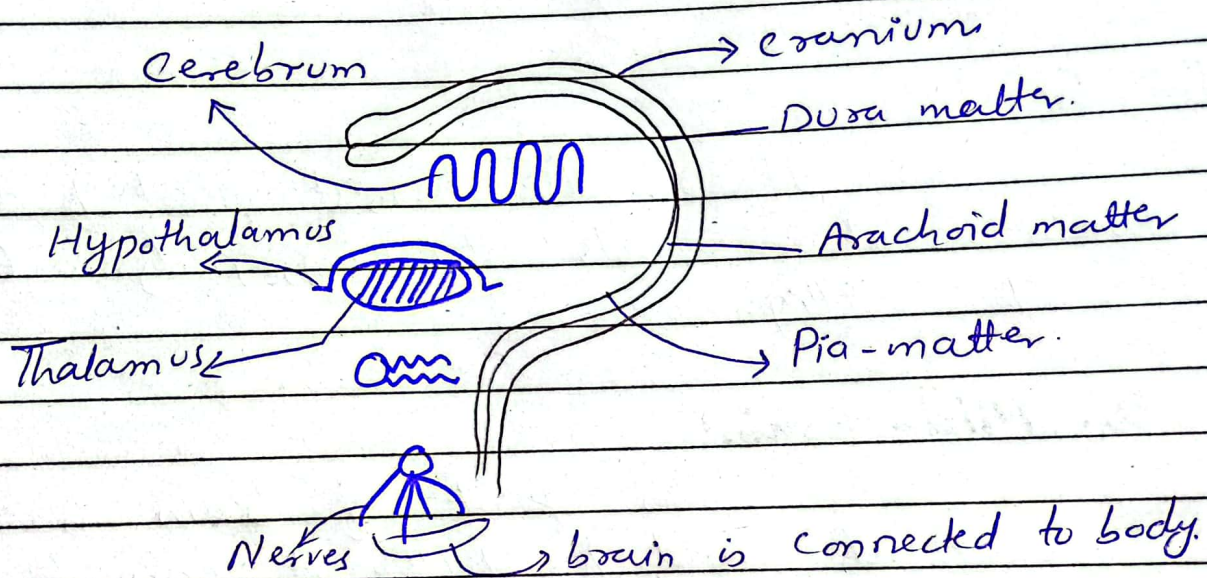 Cerebrum
cranium
Dura matter.
Hypothalamus
Arachoid matter
Thalamus
Pia-matter.
Nerves
brain is connected to body.